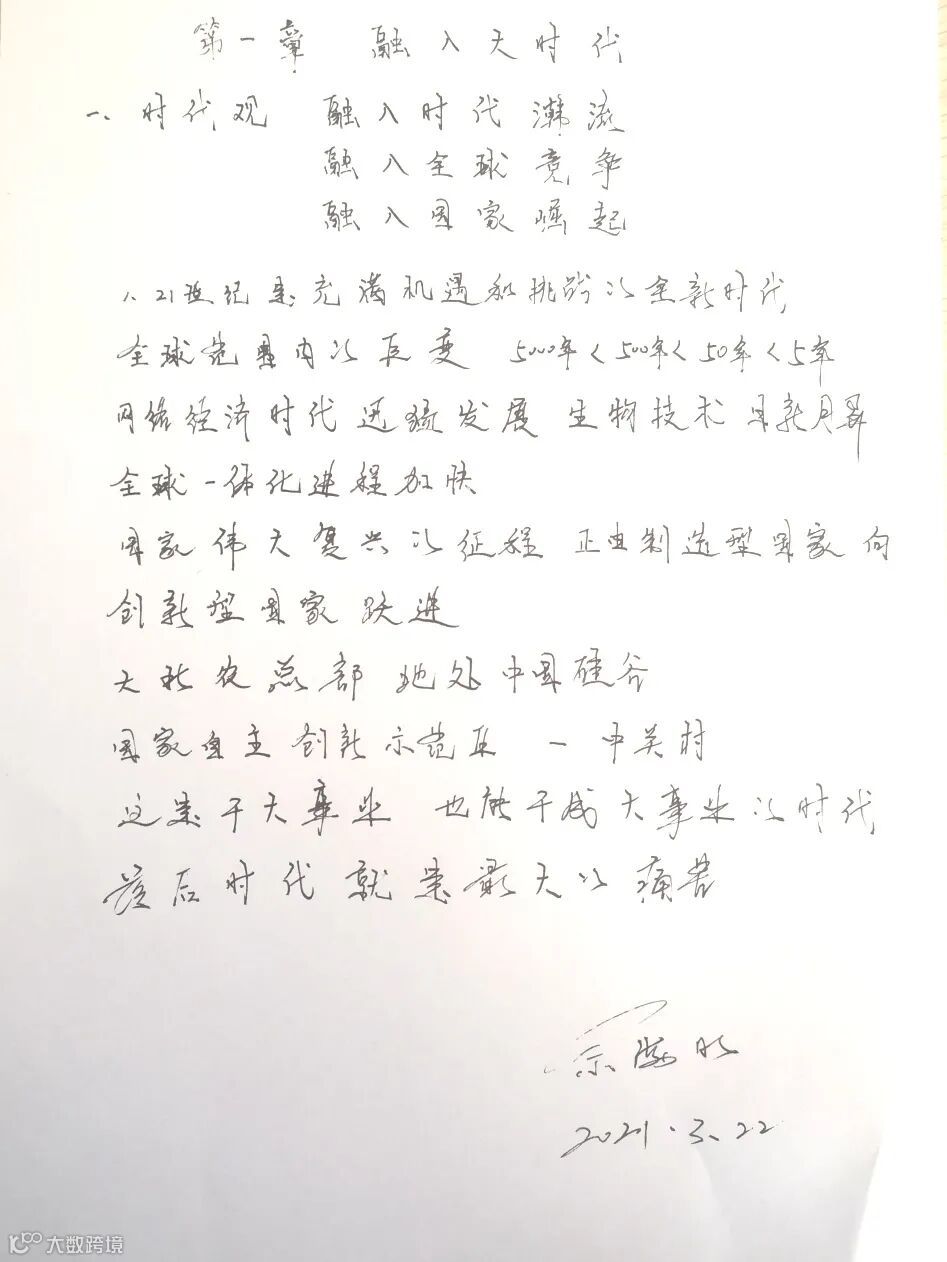 第一章 融入大时代
一、时代观 融入时代潮流
融入全球竞争
融入国家崛起
1、21世纪是充满机遇和挑战的全新时代
全球范围内的巨变 5000年<500年<50年<5年
网络经济时代迅猛发展 生物技术日新月异
全球一体化进程加快
国家伟大复兴的征程 正由制造型国家向
创新型国家跃进
大北农总部地处中国硅谷
国家自主创新示范区 — 中关村
这是干大事业 也能干成大事业的时代
落后时代就是最大的痛苦
2021.3.22
大数跨境